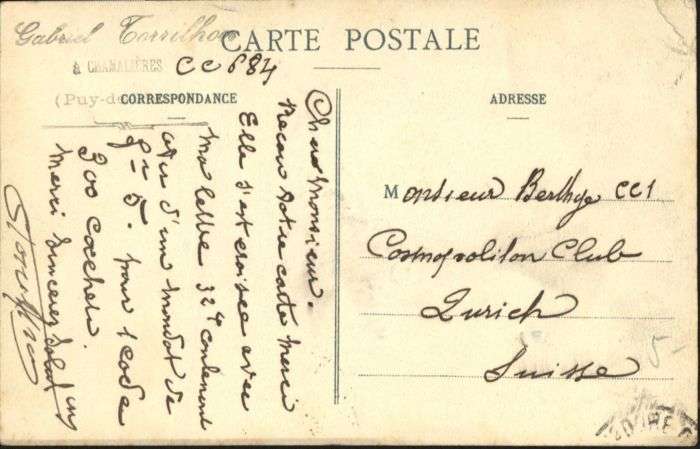 Gabriel Torrilhon
à CHAMALIÈRES
(Puy-de-
CC 684
CARTE POSTALE
CORRESPONDANCE
ADRESSE
Cher Monsieur.
Recu votre carte Merci
Elle s'est croisée avec
Ma lettre 32 contenant
avis d'un mandat de
5. pour 1 code
300 Cachets.
Merci Sincères Salut
Monsieur Berthge CC1
Cosmopoliton Club
Zurich
Suisse
5-